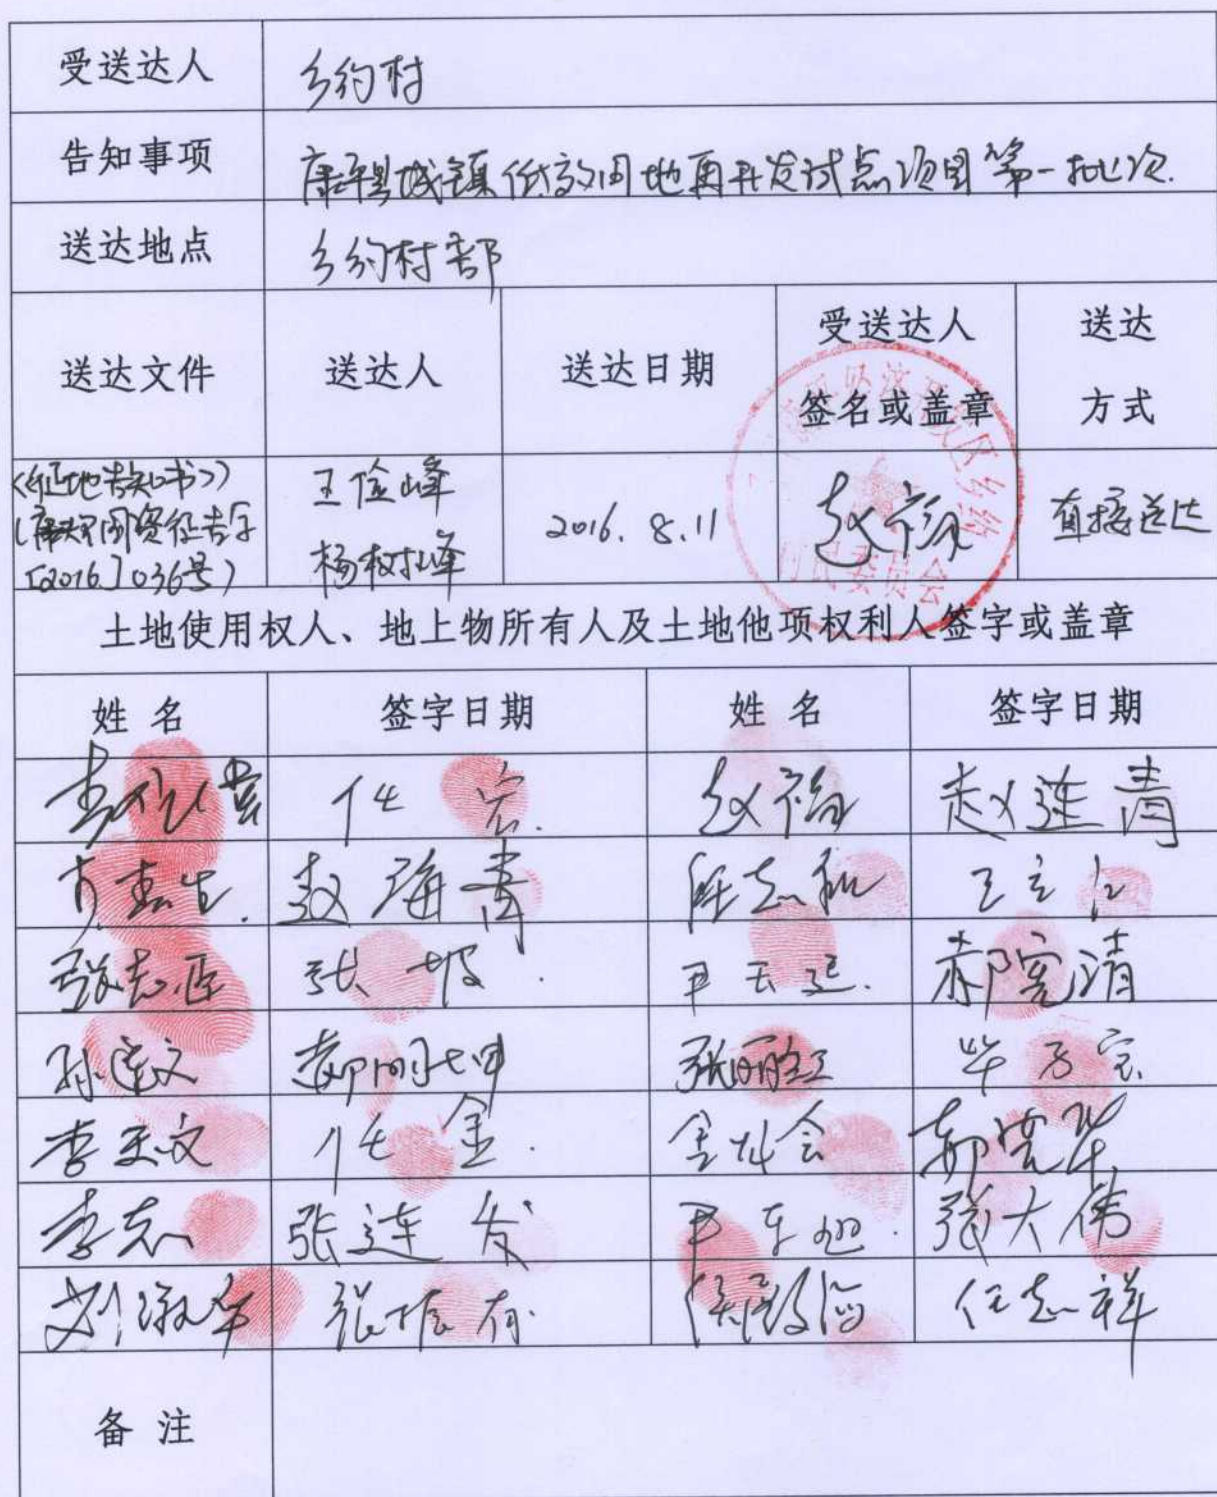 受送达人 乡约村
告知事项 康平县城镇低效用地再开发试点项目第一批次.
送达地点 乡约村部
送达文件 送达人 送达日期 受送达人签名或盖章 送达方式
《征地告知书》
(康国资征告字
[2016]036号)
王俭峰
杨树峰
2016.8.11
赵福
直接送达
村民委员会
土地使用权人、地上物所有人及土地他项权利人签字或盖章
姓名 签字日期 姓名 签字日期
任宏. 赵福 赵连青
赵海青 任志和 王立江
张志臣 张坡. 尹玉廷. 郝宪清
孙宝文 张丽红 毕万宝
李玉文 任金. 金灿会 郝宪华
李志 张连发 尹东旭. 张大伟
刘淑华 张振有 侯殿海 任志祥
备注